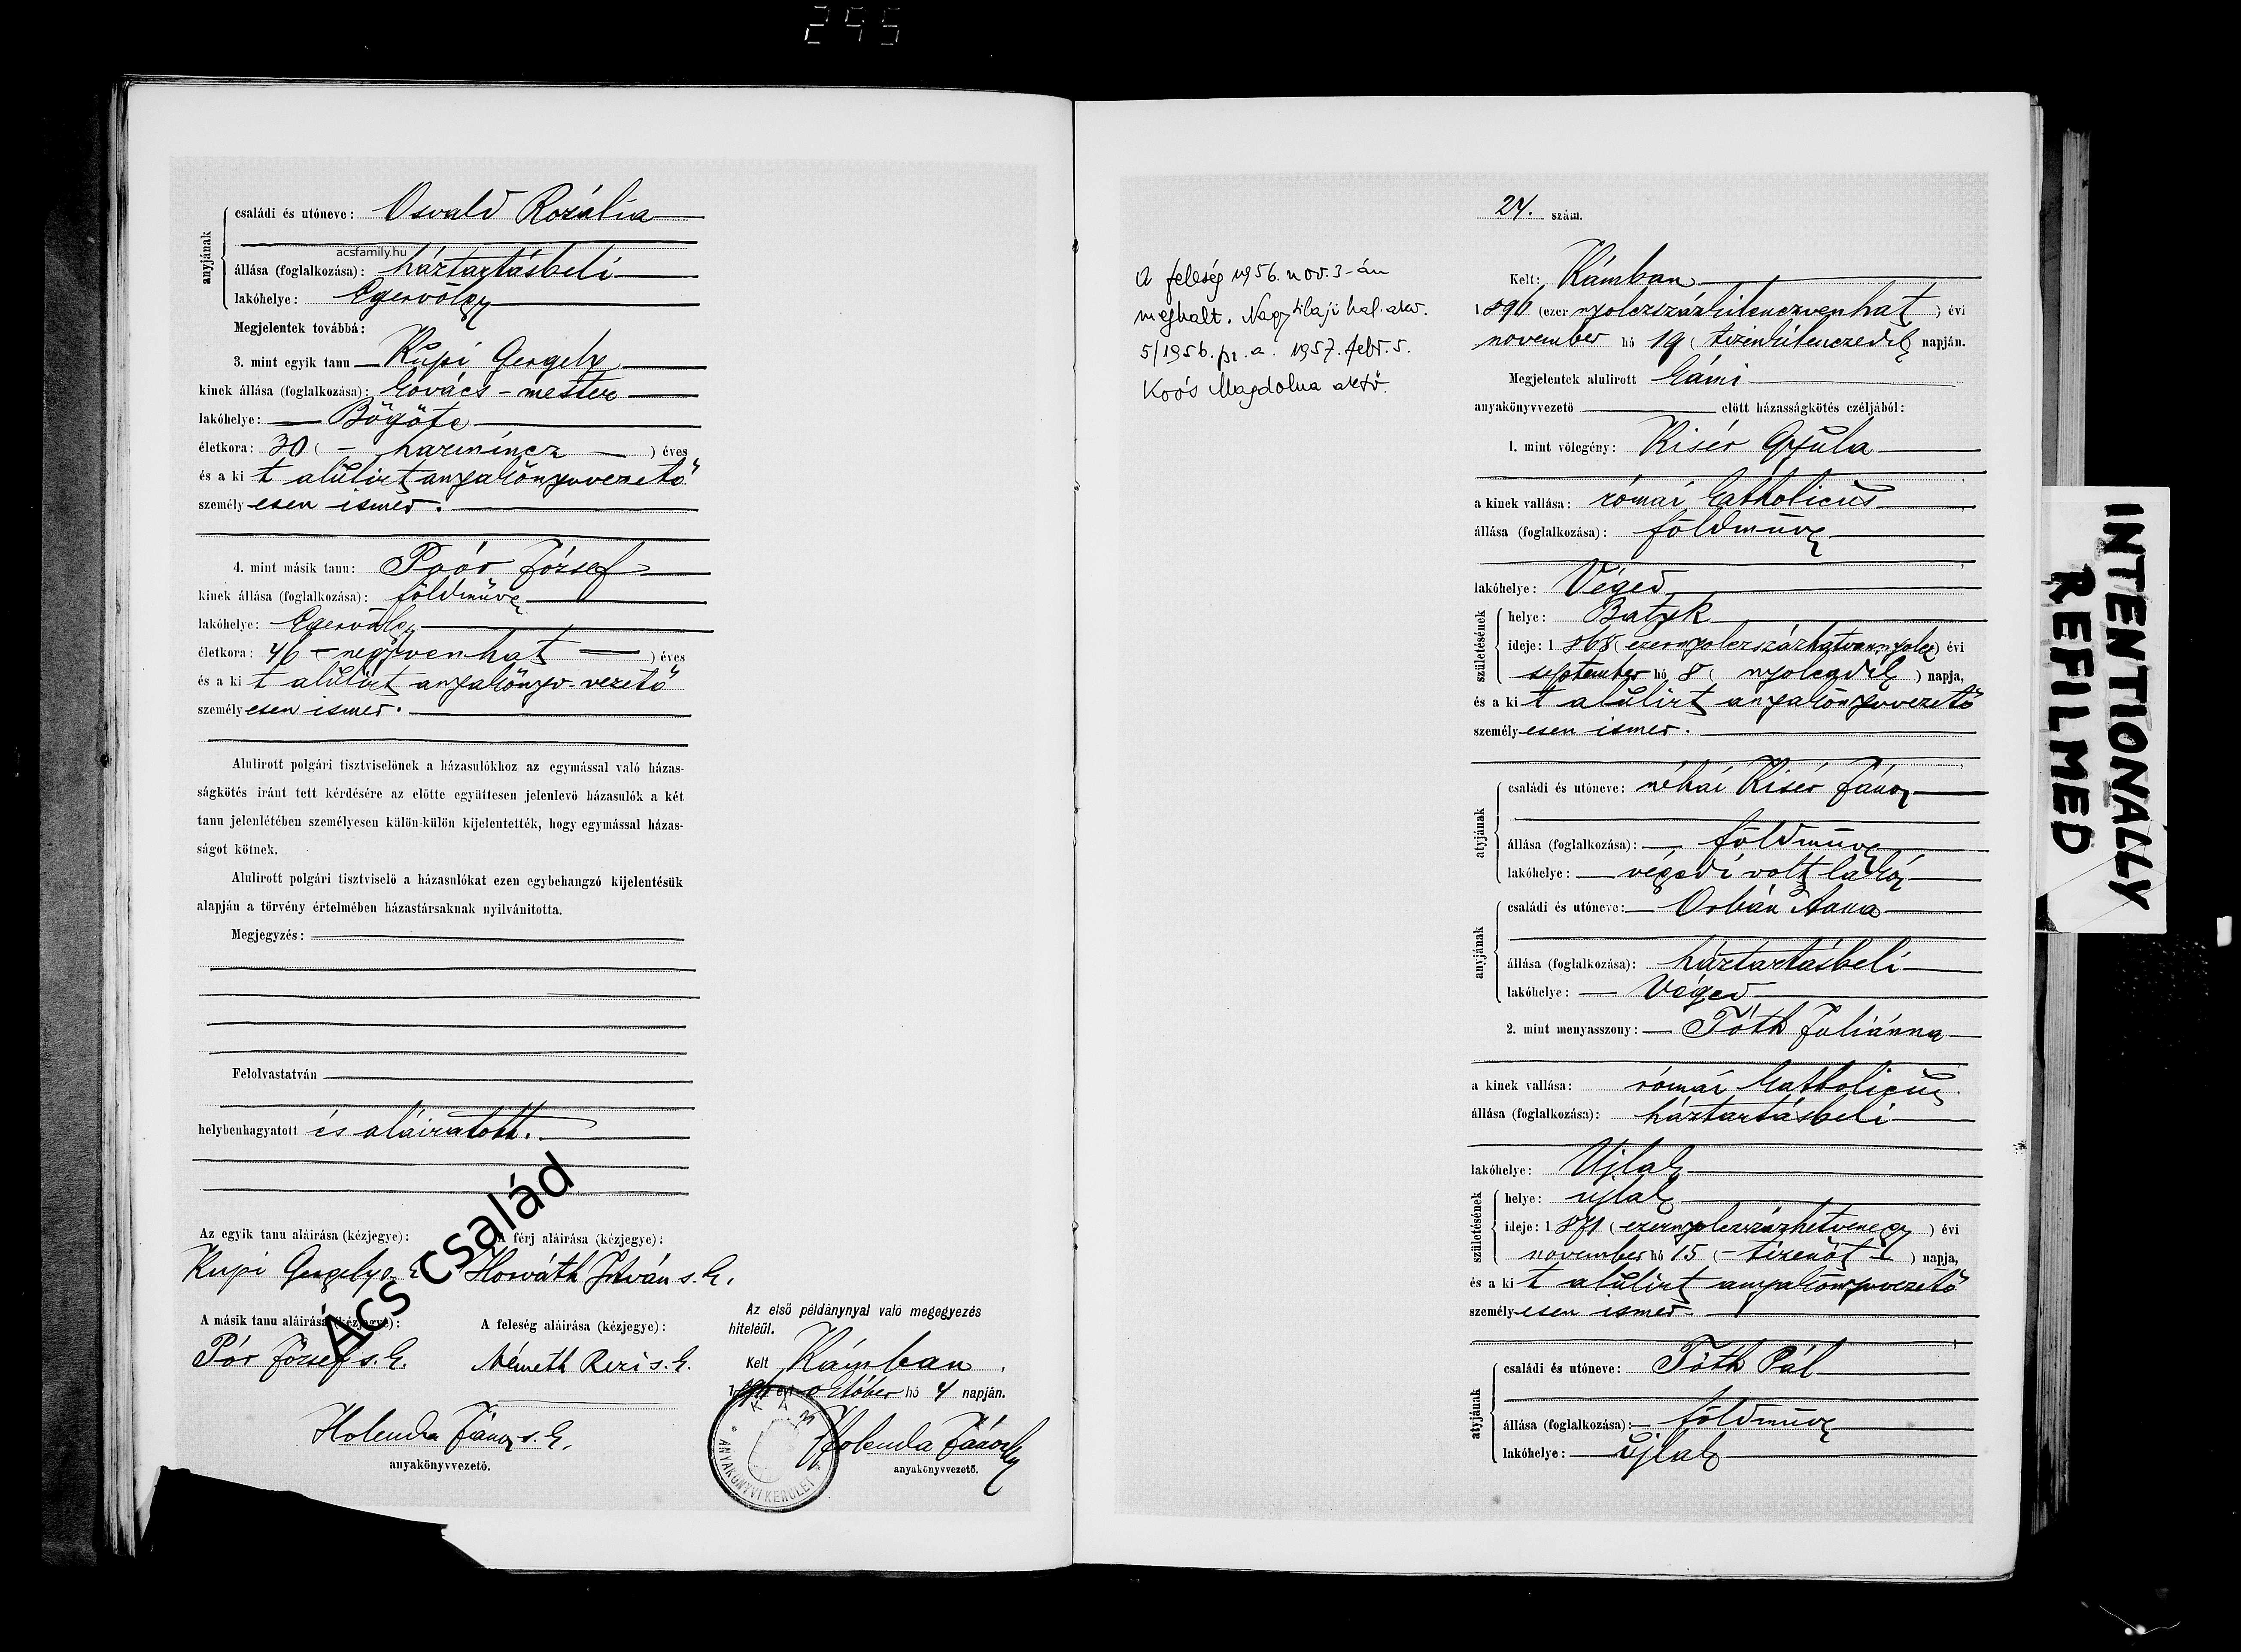 295
anyjának
családi és utóneve: Osvald Rozália
acsfamily.hu
állása (foglalkozása): háztartásbeli
lakóhelye: Egervölgy
Megjelentek továbbá:
3. mint egyik tanu Kupi Gergely
kinek állása (foglalkozása): kovács-mester
lakóhelye: Bögöte
életkora: 30 (- harmincz -) éves
és a ki t alulirt anyakönyvvezető
személy esen ismer.
4. mint másik tanu: Poór József
kinek állása (foglalkozása): földműves
lakóhelye: Egervölgy
életkora: 46 - negyvenhat - ) éves
és a ki t alulirt anyakönyv-vezető
személy esen ismer.
Alulirott polgári tisztviselőnek a házasulókhoz az egymással való házas-
ságkötés iránt tett kérdésére az előtte együttesen jelenlevő házasulók a két
tanu jelenlétében személyesen külön-külön kijelentették, hogy egymással házas-
ságot kötnek.
Alulirott polgári tisztviselő a házasulókat ezen egybehangzó kijelentésük
alapján a törvény értelmében házastársaknak nyilvánitotta.
Megjegyzés:
Felolvastatván
helybenhagyatott és aláiratott.
Az egyik tanu aláirása (kézjegye): A férj aláirása (kézjegye):
Kupi Gergely s. k. Horváth István s. k.
A másik tanu aláirása (kézjegye): A feleség aláirása (kézjegye):
Pór József s. k. Németh Rezi s. k.
Holenda János s. k.
anyakönyvvezető.
Ács család
Az első példánynyal való megegyezés
hiteléül.
Kelt Kámban,
1896 évi október hó 4 napján.
Holenda János
anyakönyvvezető.
KÁM
ANYAKÖNYVI KERÜLET
A feleség 1956. nov. 3-án
meghalt. Nagytilaji hal. akv.
5/1956. pr. a. 1957. febr. 5.
Koós Magdolna aktő.
24. szám.
Kelt: Kámban
1896 (ezer nyolczszázkilenczvenhat ) évi
november hó 19 ( tizenkilenczedik napján.
Megjelentek alulirott kámi
anyakönyvvezető előtt házasságkötés czéljából:
1. mint völegény: Kisér Gyula
a kinek vallása: római katholicus
állása (foglalkozása): földműves
lakóhelye: Véged
születésének
helye: Batyk
ideje: 1868 ( ezernyolczszázhatvannyolcz) évi
september hó 8 ( nyolczadik ) napja,
és a ki t alulirt anyakönyvvezető
személy esen ismer.
atyjának
családi és utóneve: néhai Kisér János
állása (foglalkozása): földműves
lakóhelye: végedi volt lakós
anyjának
családi és utóneve: Orbán Anna
állása (foglalkozása): háztartásbeli
lakóhelye: Véged
2. mint menyasszony: Tóth Juliánna
a kinek vallása: római katholicus
állása (foglalkozása): háztartásbeli
lakóhelye: Ujlak
születésének
helye: ujlak
ideje: 1871 ( ezernyolczszázhetvenegy ) évi
november hó 15 (- tizenöt - ) napja,
és a ki t alulirt anyakönyvvezető
személy esen ismer.
atyjának
családi és utóneve: Tóth Pál
állása (foglalkozása): földműves
lakóhelye: ujlak
INTENTIONALLY
REFILMED